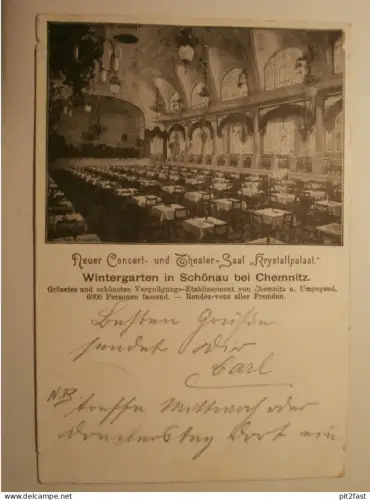 Neuer Concert- und Theater-Saal „Krystallpalast“
Wintergarten in Schönau bei Chemnitz.
Grösstes und schönstes Vergnügungs-Etablissement von Chemnitz u. Umgegend.
6000 Personen fassend. — Rendez-vous aller Fremden.
Besten Grüße
sendet Dir
Carl
N.B. treffe Mittwoch oder
donnerstag Dort ein
pit2fast
delcampe.net